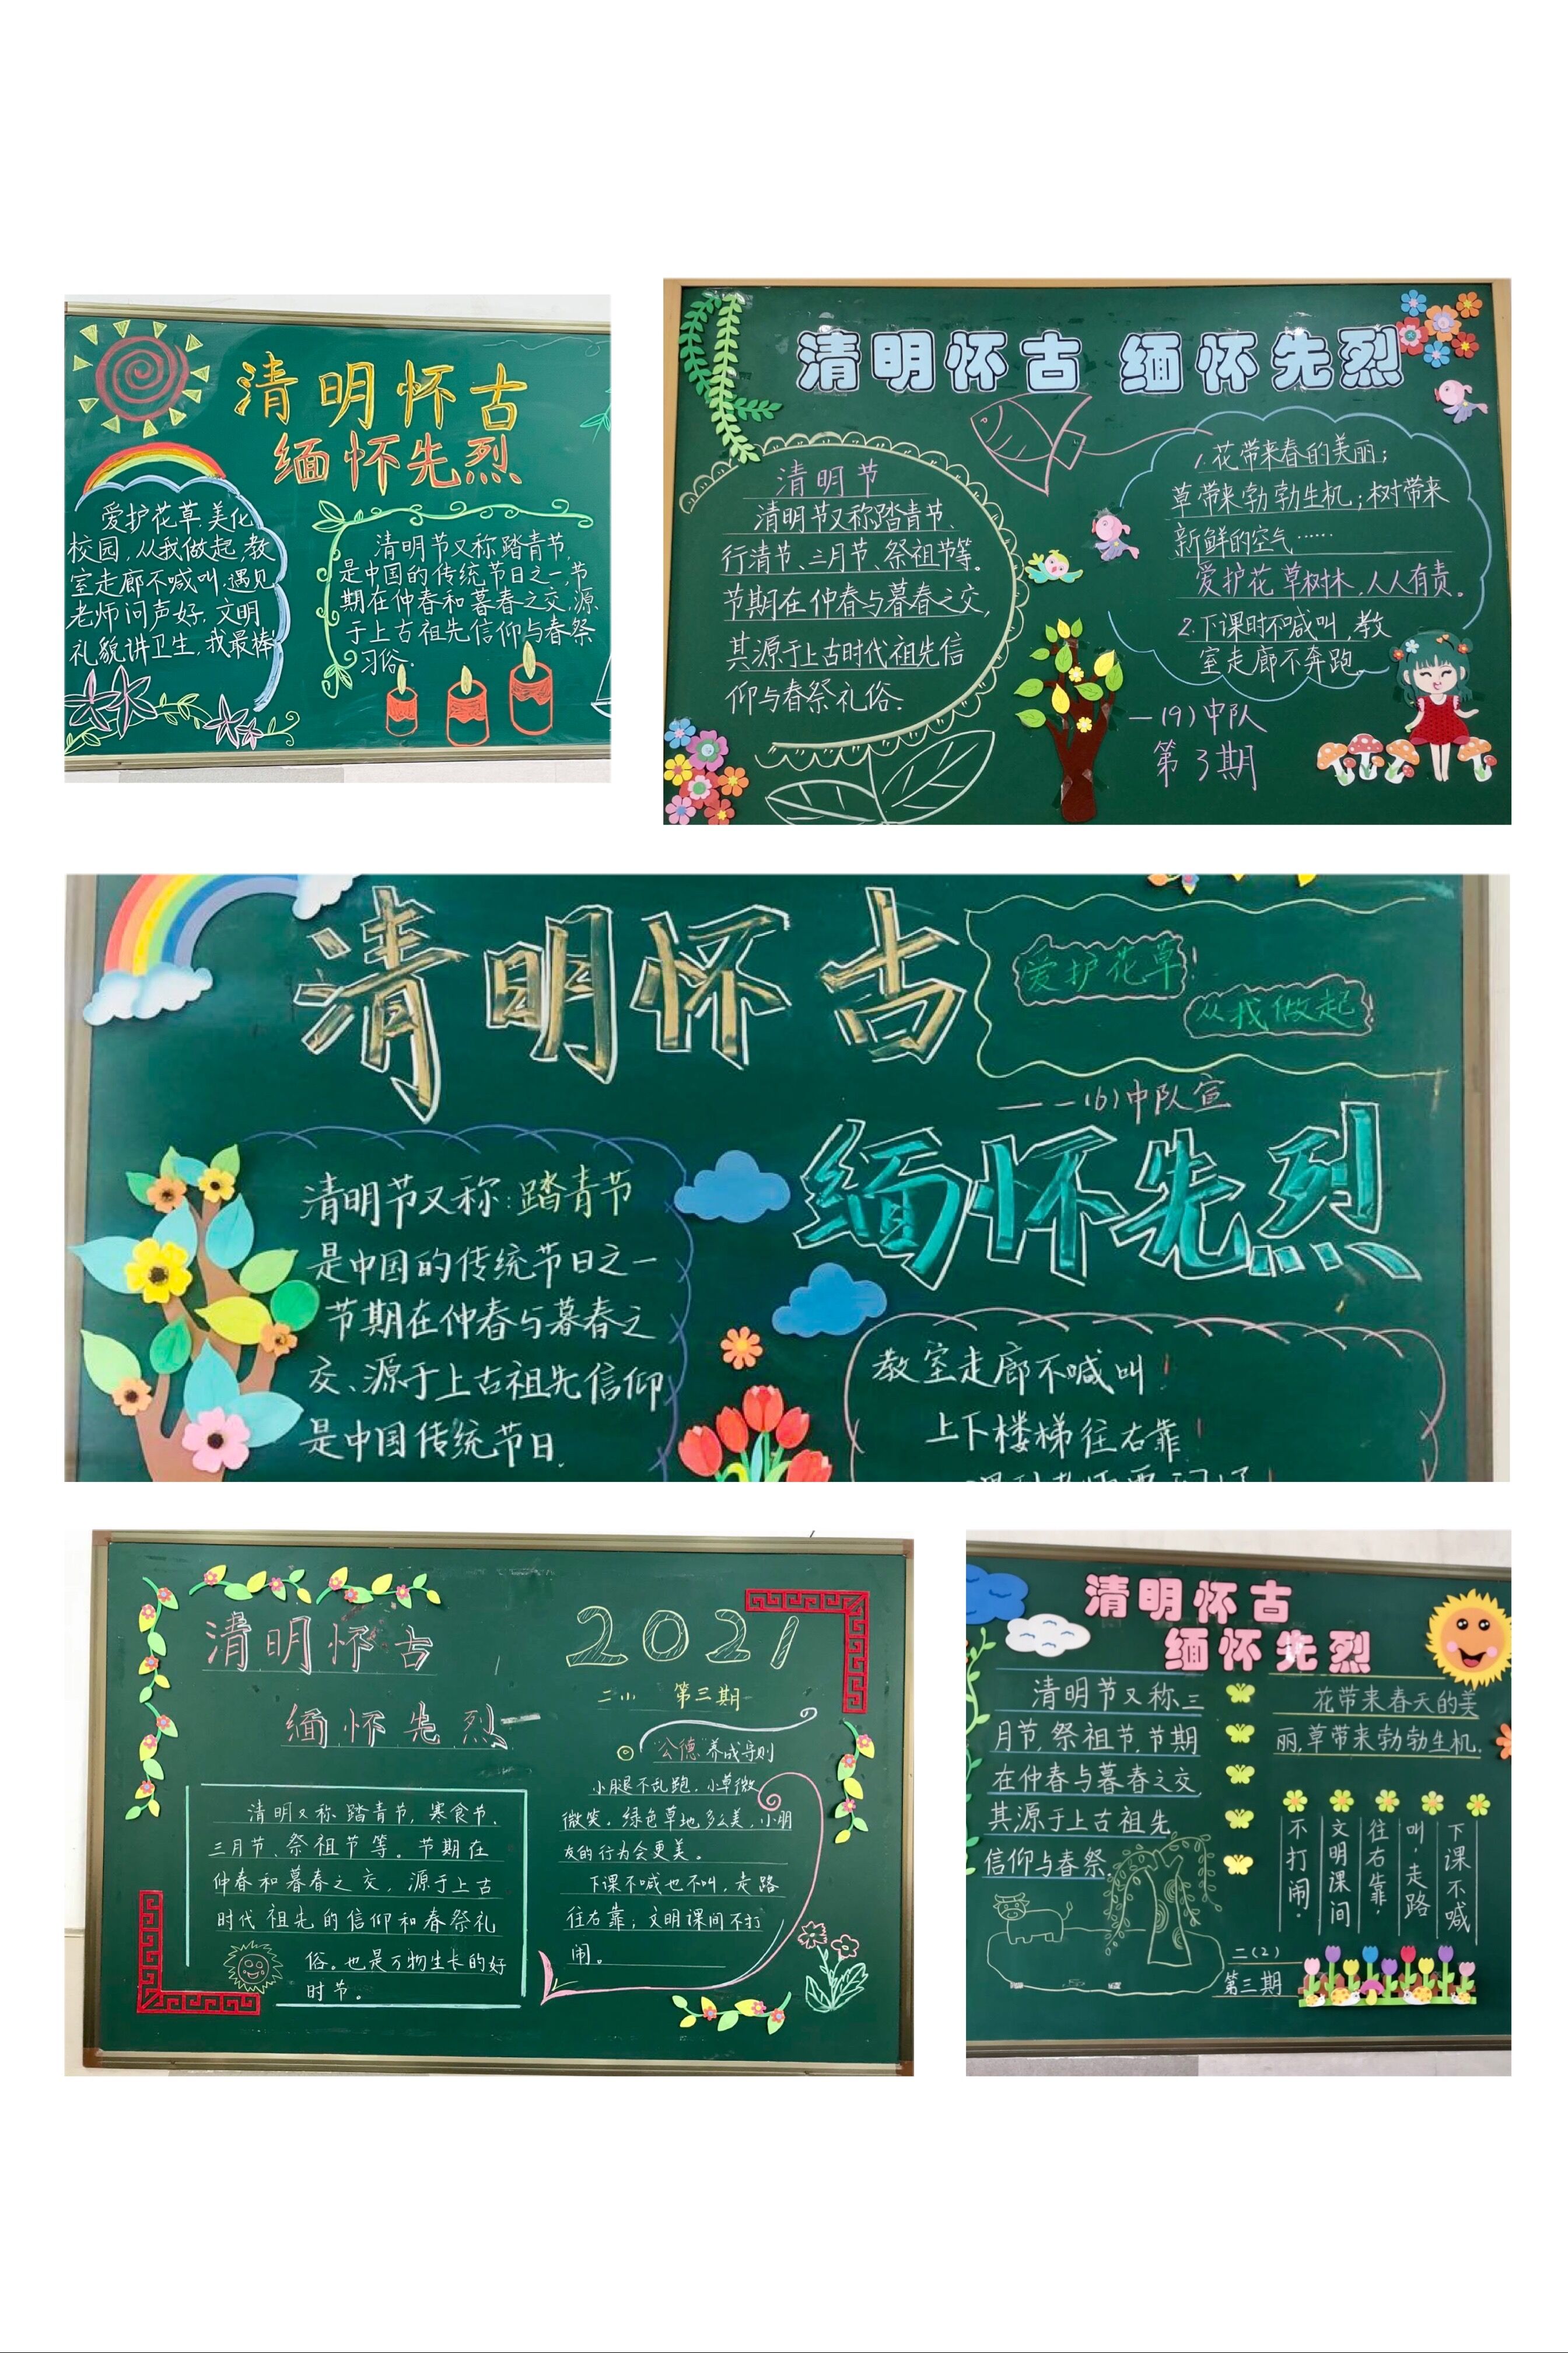 清明怀古
缅怀先烈
爱护花草,美化
校园,从我做起,教
室走廊不喊叫,遇见
老师问声好,文明
礼貌讲卫生,我最棒
清明节又称踏青节,
是中国的传统节日之一,节
期在仲春和暮春之交,源
于上古祖先信仰与春祭
习俗。
清明怀古 缅怀先烈
清明节
清明节又称踏青节、
行清节、三月节、祭祖节等。
节期在仲春与暮春之交,
其源于上古时代祖先信
仰与春祭礼俗.
1.花带来春的美丽;
草带来勃勃生机;树带来
新鲜的空气……
爱护花草树木,人人有责。
2.下课时不喊叫,教
室走廊不奔跑
一(9)中队
第3期
清明怀古
爱护花草!
从我做起!
——一(6)中队宣
缅怀先烈
清明节又称:踏青节
是中国的传统节日之一
节期在仲春与暮春之
交、源于上古祖先信仰
是中国传统节日.
教室走廊不喊叫!
上下楼梯往右靠!
清明怀古
缅怀先烈
2021
第三期
“公德”养成守则
清明又称踏青节,寒食节、
三月节、祭祖节等。节期在
仲春和暮春之交,源于上古
时代祖先的信仰和春祭礼
俗。也是万物生长的好
时节。
小腿不乱跑,小草微
微笑。绿色草地多么美,小朋
友的行为会更美。
下课不喊也不叫,走路
往右靠;文明课间不打
闹。
清明怀古
缅怀先烈
清明节又称三
月节,祭祖节,节期
在仲春与暮春之交,
其源于上古祖先
信仰与春祭.
花带来春天的美
丽,草带来勃勃生机.
下课不喊
叫,走路
往右靠,
文明课间
不打闹.
二(2)
第三期